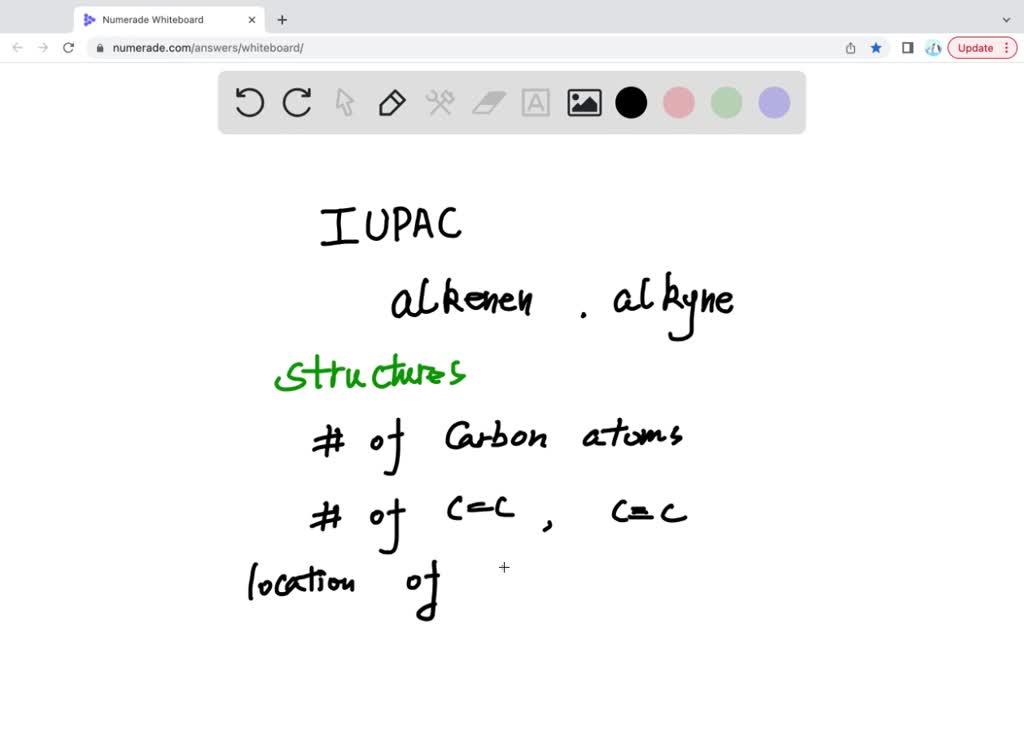 Numerade Whiteboard
numerade.com/answers/whiteboard/
Update
A
IUPAC
alkenen . alkyne
structures
# of Carbon atoms
# of C=C , C≡C
location of